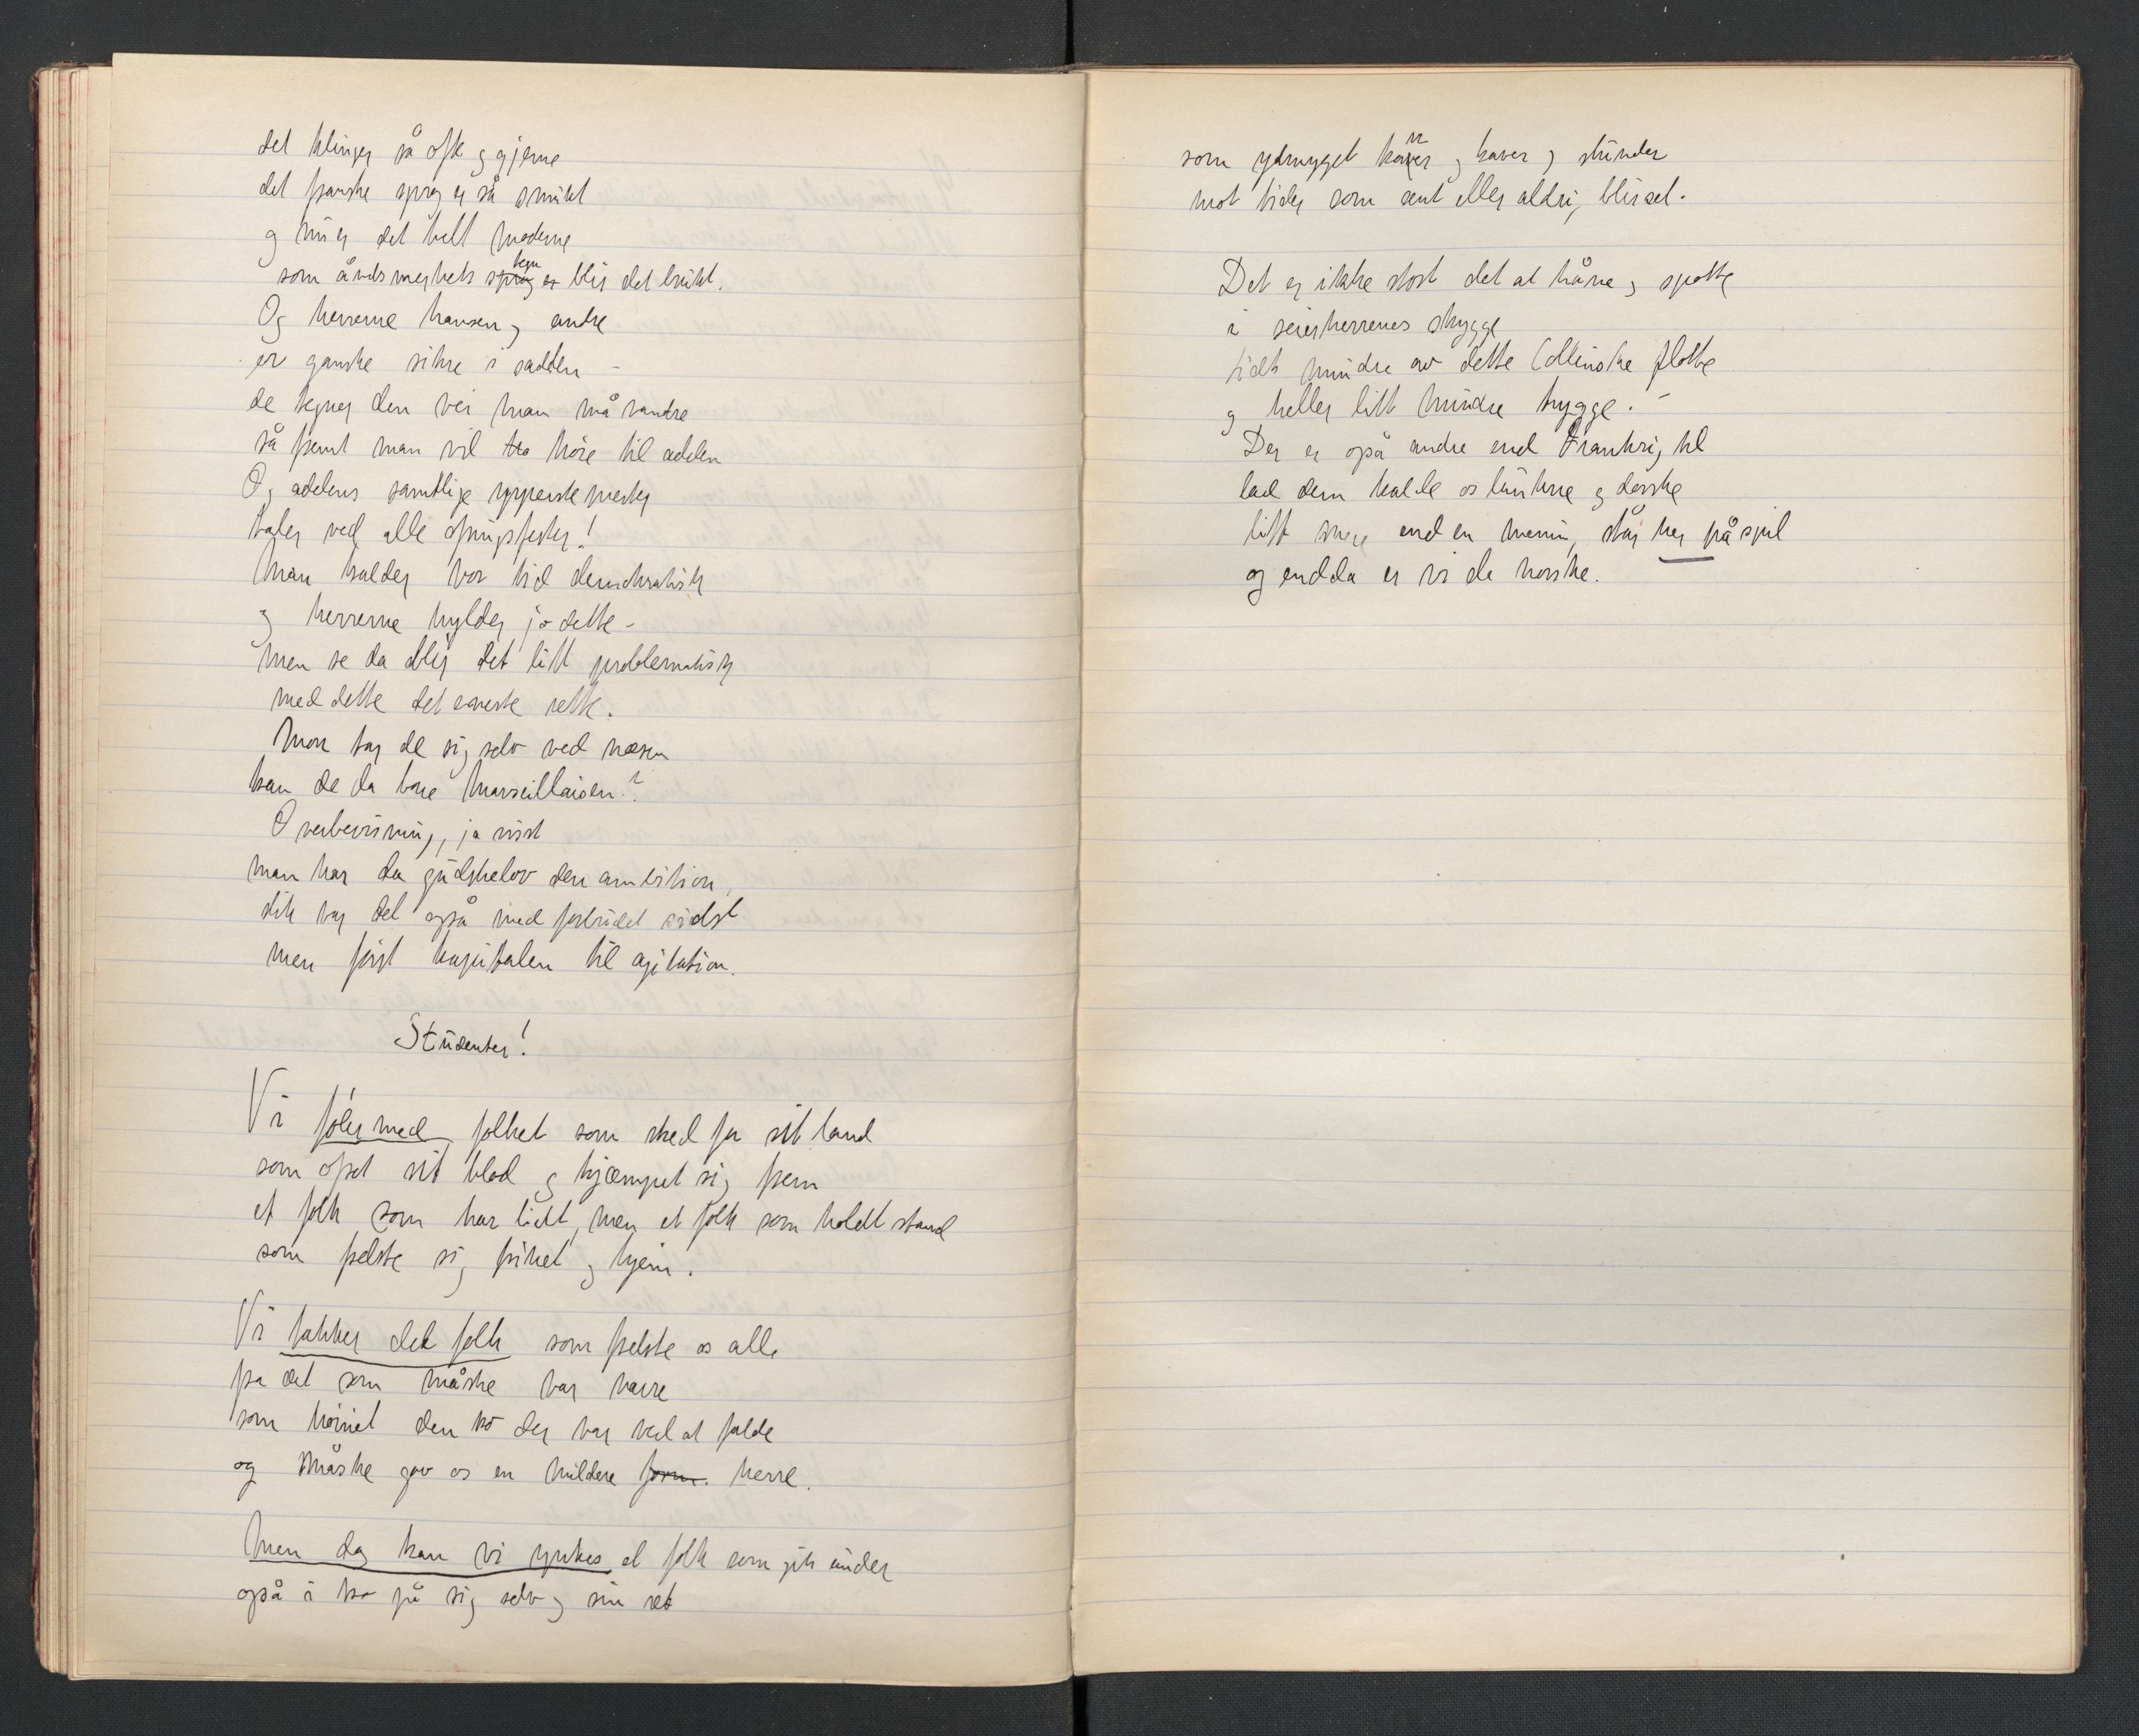 det klinger så ofte og gjerne
det franske sprog er så smukt
og nu er det helt moderne
som åndsmerkets tegn blir det brukt.
Og herrerne hansen og andre
er ganske sikre i sadlen –
de tegner den vei man må vandre
så fremt man vil høre til adelen
Og adelens samtlige ypperstepræster
taler ved alle
Man kalder vor tid demokratisk
og herrerne hylder jo dette –
men se da blir det litt problematisk
med dette det eneste rette.
Mon tar de sig selv ved næsen
kan de da bare Marseillaisen?
Overbevisning, ja visst
man har da gudskelov den ambition,
slik var det også med forbudet sidst
men først kapitalen til agitation.
Studenter!
Vi føler med folket som stred for sit land
som ofret sit blod og kjæmpet sig frem
et folk som har lidt, men et folk som holdt stand
som frelste sig frihet og hjem.
Vi takker det folk som frelste os alle
fra det som måske var værre
som høinet den tro der var ved at falde
og måske gav os en mildere form. herre.
Men dog kan vi ynkes et folk som gik under
også i tro på sig selv og sin ret
som ydmyget og kaver og stunder
mot tider som sent eller aldrig blir sel.
Det er ikke stort det at håne og spotte
i seierherrenes skygge
lidt mindre av dette Collinske flotte
og heller litt mindre trygge. –
Der er også andre end Frankrig til
lad dem kalde os lunkne og dorske
litt mere end en mening står her på spil
og endda er vi de norske.